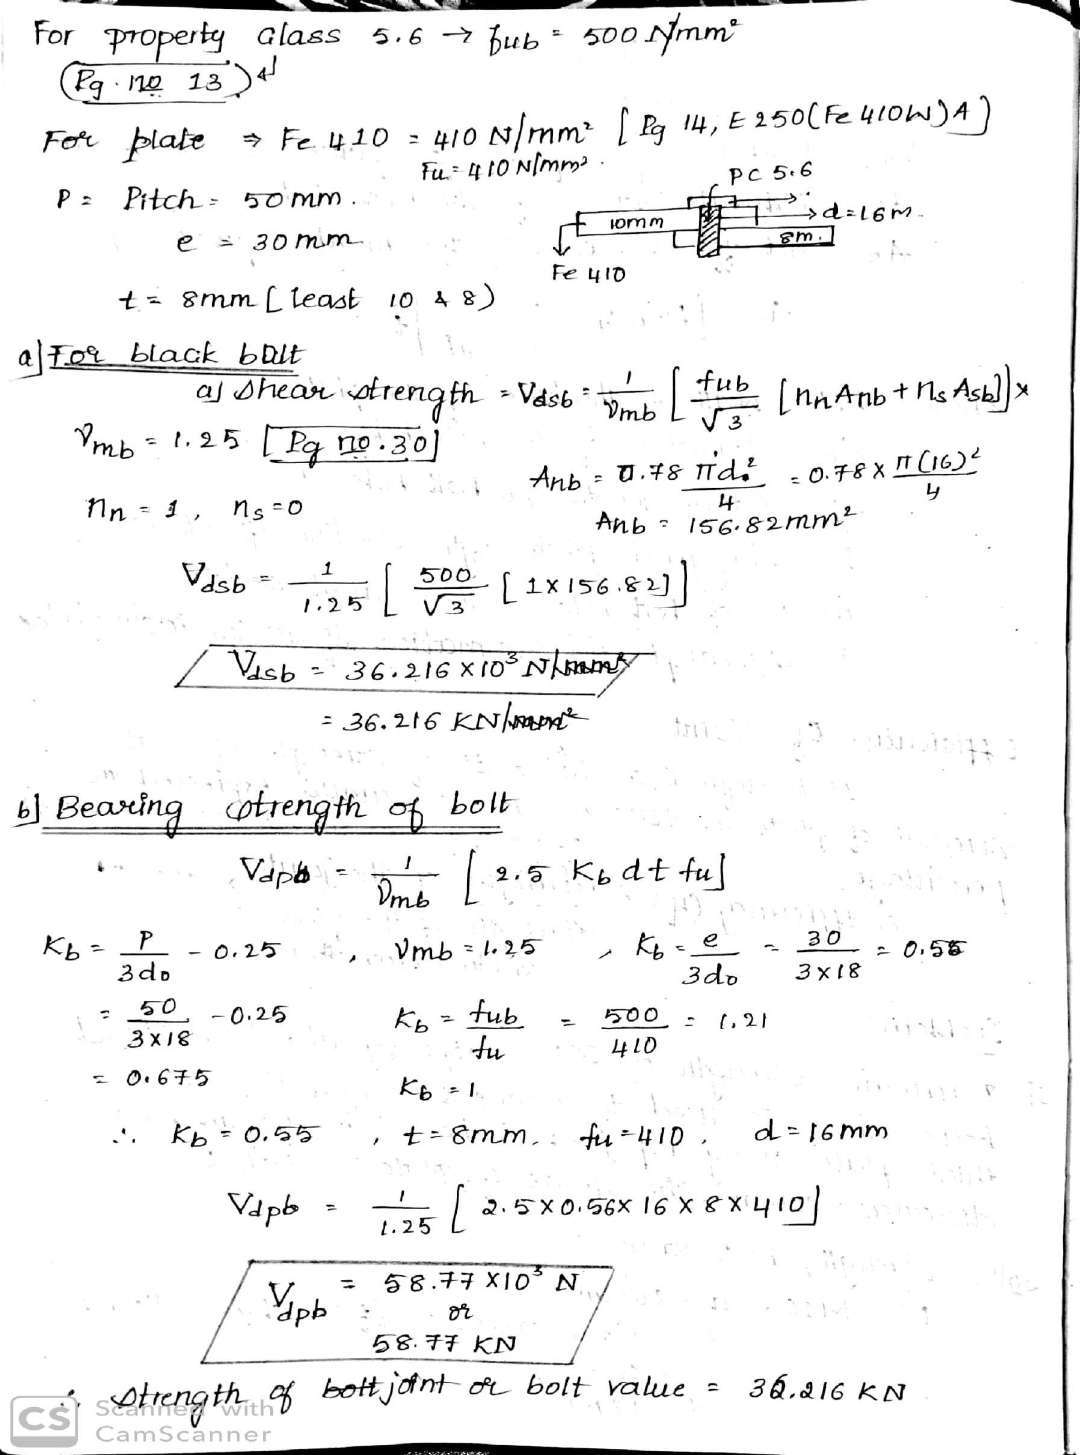 For property Glass 5.6 → fub = 500 N/mm²
(Pg. no 13)
For plate ⇒ Fe 410 = 410 N/mm² [Pg 14, E 250(Fe 410W)A]
Fu = 410 N/mm²
P = Pitch = 50mm.
PC 5.6
10mm
d=16m
e = 30mm
8m.
Fe 410
t = 8mm [least 10 & 8)
a] For black bolt
a) Shear strength = Vdsb = 1/γmb [fub/√3 [nn Anb + ns Asb]] x
γmb = 1.25 [Pg no. 30]
Anb = 0.78 πd²/4 = 0.78 x π(16)²/4
nn = 1, ns = 0
Anb = 156.82mm²
Vdsb = 1/1.25 [500/√3 [1x156.82]]
Vdsb = 36.216 x10³ N/mm²
= 36.216 KN/mm²
b] Bearing strength of bolt
Vdpb = 1/γmb [2.5 Kb dt fu]
Kb = P/3do - 0.25, γmb = 1.25, Kb = e/3do = 30/3x18 = 0.55
= 50/3x18 - 0.25 Kb = fub/fu = 500/410 = 1.21
= 0.675 Kb = 1
∴ Kb = 0.55, t = 8mm, fu = 410, d = 16mm
Vdpb = 1/1.25 [2.5x0.56x16x8x410]
Vdpb = 58.77 x10³ N
or
58.77 KN
∴ Strength of bolt joint or bolt value = 36.216 KN
CS Scanned with
CamScanner